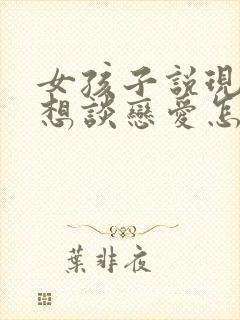 女孩子説現
想談戀愛怎
葉非夜